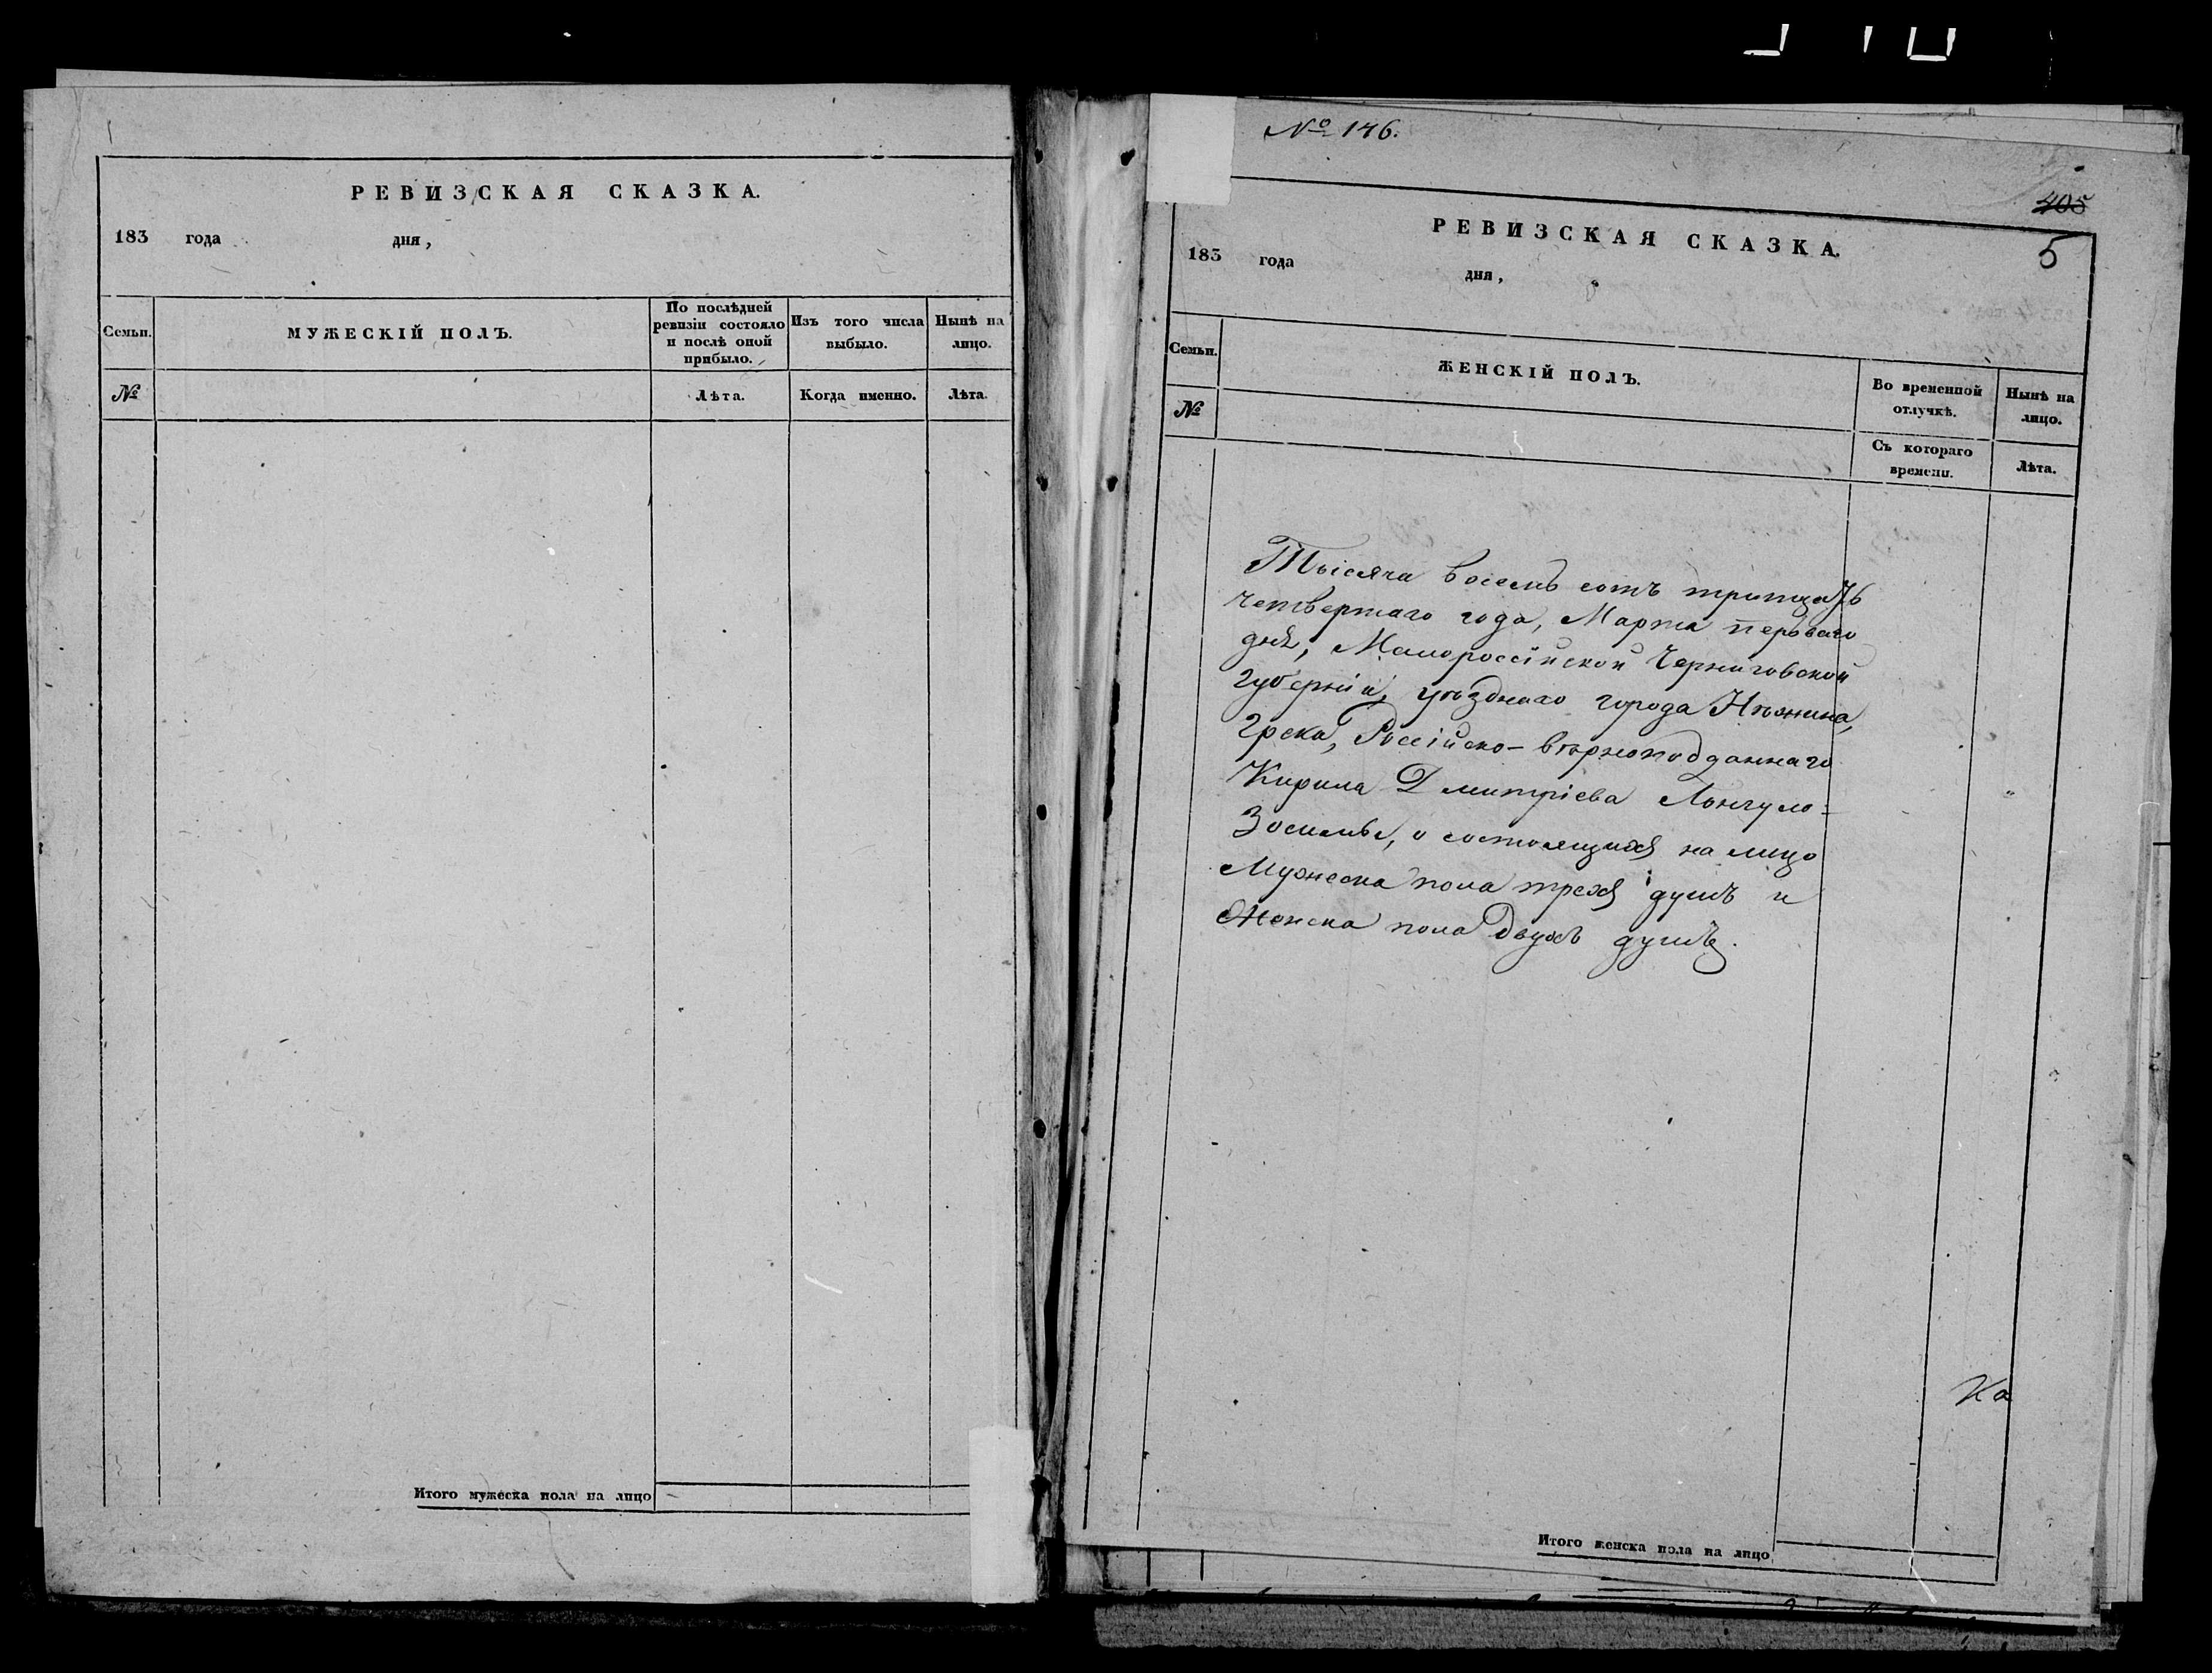 РЕВИЗСКАЯ СКАЗКА.
183 года дня,
Семьи.
МУЖЕСКІЙ ПОЛЪ.
По послѣдней
ревизіи состояло
и послѣ оной
прибыло.
Изъ того числа
выбыло.
Нынѣ на
лицо.
№
Лѣта.
Когда именно.
Лѣта.
Итого мужеска пола на лицо
№ 146.
405
5
РЕВИЗСКАЯ СКАЗКА.
183 года дня,
Семьи.
ЖЕНСКІЙ ПОЛЪ.
Во временной
отлучкѣ.
Нынѣ на
лицо.
№
Съ котораго
времени.
Лѣта.
Тысяча восемь сотъ тритцать
четвертаго года, Марта перваго
дня, Малороссійской Черниговской
губерніи, уѣзднаго города Нѣжина,
Грека, Россійско-вѣрноподданнаго
Кирила Дмитріева
о состоящихъ на лицо
Мужеска пола трехъ душъ и
Женска пола двухъ душъ.
Ка
Итого женска пола на лицо